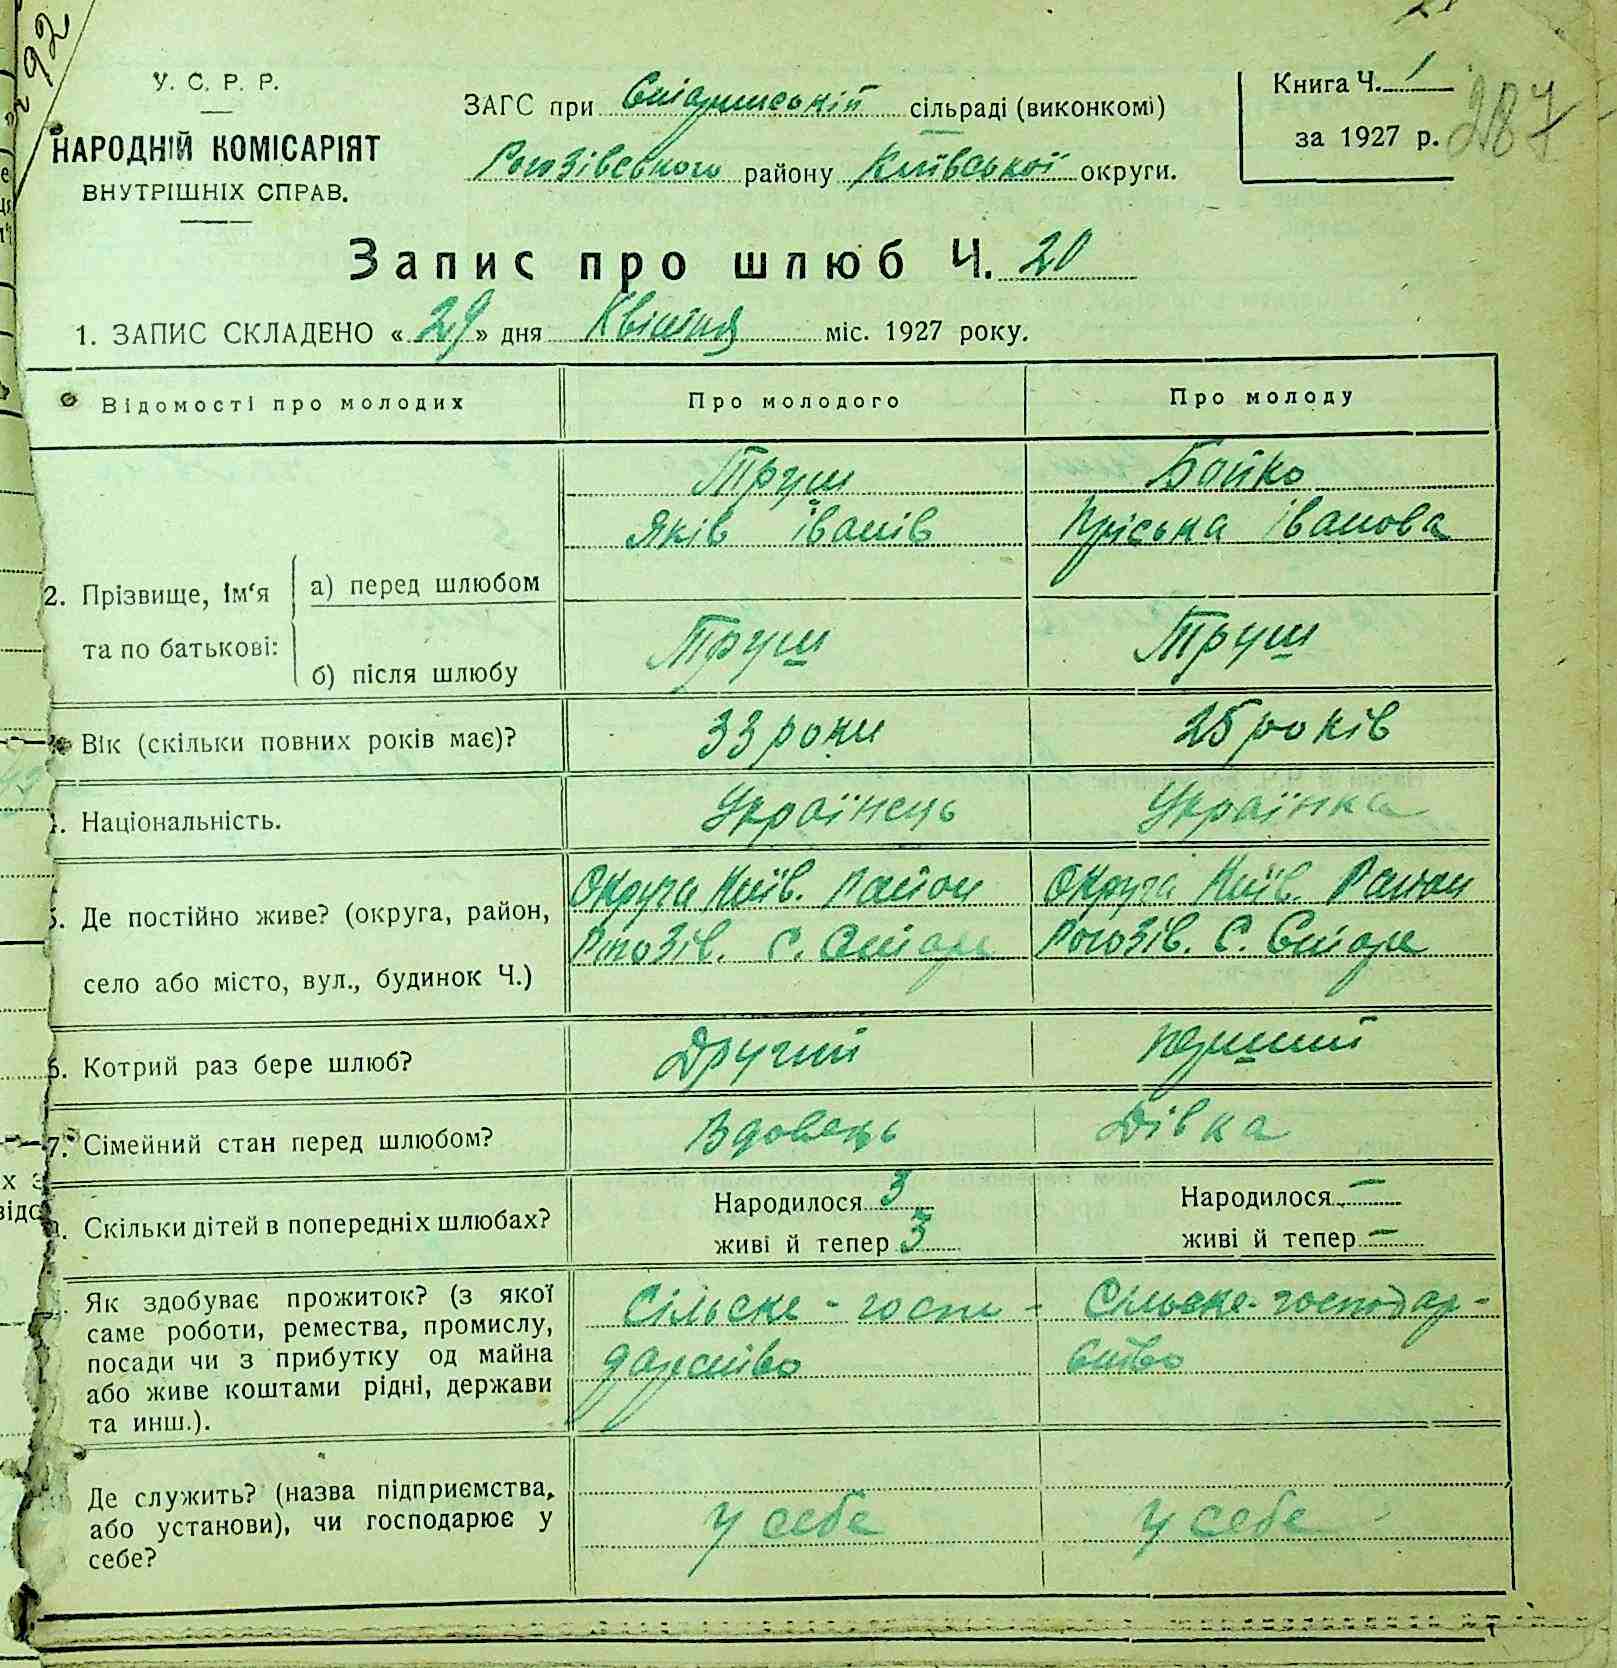 92
У. С. Р. Р.
НАРОДНІЙ КОМІСАРІЯТ
ВНУТРІШНІХ СПРАВ.
ЗАГС при Старинській сільраді (виконкомі)
Рогозівського району Київської округи.
Книга Ч. 1
за 1927 р.
287
Запис про шлюб Ч. 20
1. ЗАПИС СКЛАДЕНО «29» дня Квітня міс. 1927 року.
Відомості про молодих Про молодого Про молоду
Труш Бойко
Яків Іванів Пріська Іванова
2. Прізвище, ім'я та по батькові:
а) перед шлюбом
б) після шлюбу Труш Труш
Вік (скільки повних років має)? 33 роки 25 років
Національність. Українець Українка
5. Де постійно живе? (округа, район,
село або місто, вул., будинок Ч.)
Округа Київ. Район Округа Київ. Район
Рогозів. с. Старе Рогозів. с. Старе
6. Котрий раз бере шлюб? Другий перший
7. Сімейний стан перед шлюбом? Вдовець Дівка
Скільки дітей в попередніх шлюбах?
Народилося 3 Народилося —
живі й тепер 3 живі й тепер —
Як здобуває прожиток? (з якої
саме роботи, ремества, промислу,
посади чи з прибутку од майна
або живе коштами рідні, держави
та инш.).
Сільске-госпо- Сільске-господар-
дарство ство
Де служить? (назва підприємства,
або установи), чи господарює у
себе?
у себе у себе